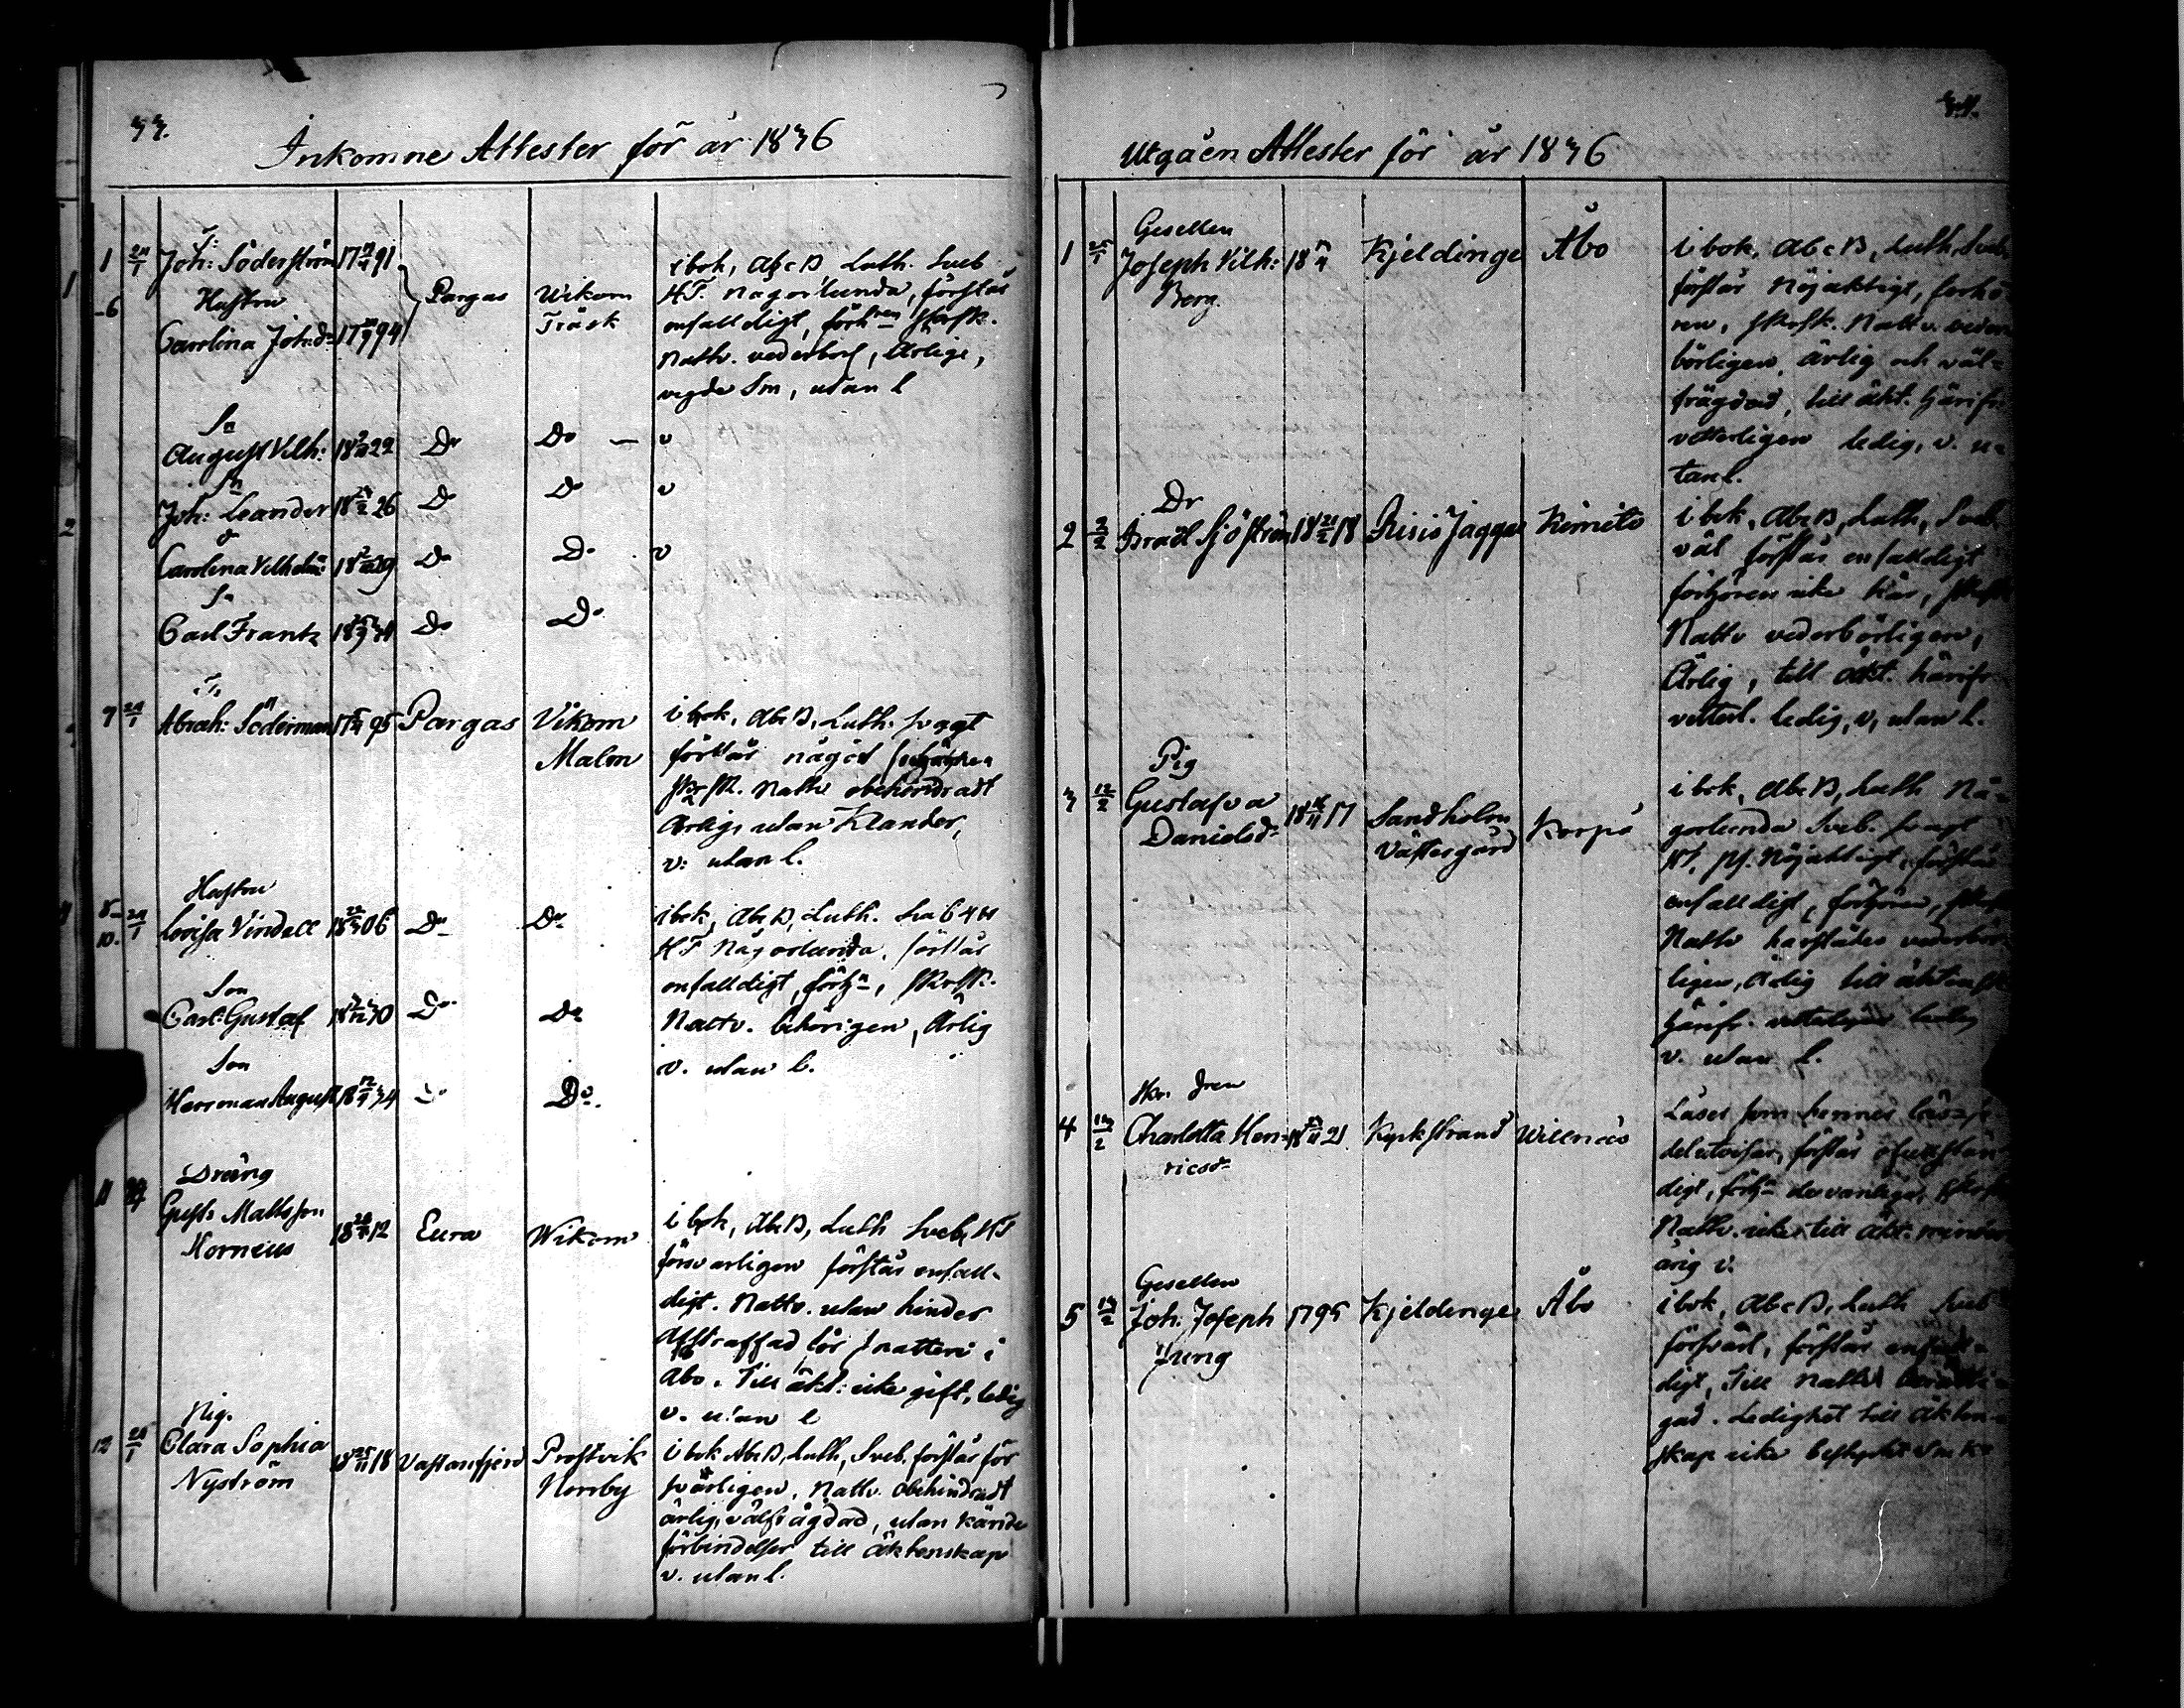 33.
Inkomne Attester för år 1836
1 24/1 T: Joh: Söderström 17 91
-6 Hustru Pargas Wikom
Carolina Joh:dr 17 94 Träsk
i bok, Abc B, Luth. Sveb
HT. någorlunda, förstår
enfalldigt, förhren skrsk.
Nattv. vederborl, Ärlige,
vigde Sm, utan l
Sn
August Vilh: 18 22 Do Do — v
Sn
Joh: Leander 18 26 Do Do v
Carolina Vilhelm: 18 29 Do Do v
Sn
Carl Frantz 18 34 Do Do
T.
7 24/1 Abrah: Söderman 17 95 Pargas Vikom
Malm
i bok, Abc B, Luth. svagt
förstår något
skrsk. Nattv obehindradt
Ärlig, utan Klander,
v: utan l.
Hustru
8- 10. 24/1 Lovisa Vindell 18 22/3 06 Do Do
i bok, Abc B, Luth. Sveb
HT Någorlunda, förstår
enfalldigt, förhn, skrsk.
Nattv. behörigen, Ärlig
v. utan l.
Son
Carl Gustaf 18 30 Do Do
Son
Herrman August 18 34 Do Do.
Dräng
11 Gust: Mattsson
Horneus 18 12 Eura Wikom
i bok, Abc B, Luth Sveb, HT
försvarligen förstår enfall-
digt. Nattv. utan hinder
Afstraffad för snatteri i
Åbo. Till äkt: icke gift, ledig
v. utan l
Pig.
12 Clara Sophia
Nyström 18 25/11 18 Vestanfjerd Prostvik
Norrby
i bok Abc B, Luth, Sveb. förstår för
svarligen, Nattv. obehindradt
ärlig, välfrägdad, utan kände
förbindelser till äktenskap
v. utan l.
34.
Utgåen Attester för år 1836
Gesellen
1 25/1 Joseph Vilh: 18 Kjeldinge Åbo
Berg
i bok, Abc B, Luth, Sveb
förstår Nöjaktigt, förhö-
ren, skrsk. Nattv. veder-
börligen, ärlig och väl-
frägdad, till äkt. härifr.
vetterligen ledig, v. u-
tan l.
Dr
2 2/2 Israël Sjöström 18 21/2 18 Risis Jagger Kimito
i bok, Abc B, Luth, Sveb.
väl förstår enfalldigt
förhören icke här, skrsk
Nattv vederbörligen,
Ärlig, till äkt. härifr
vetterl. ledig, v, utan l.
Pig
3 12/2 Gustafva
Danielsdr 18 17 Sandholm
Västergård Korpo
i bok, Abc B, Luth Nå-
gorlunda Sveb. svagt
HT, ps. Nöjaktigt, förstår
enfalldigt, förhören, skrsk
Nattv härstädes vederbör-
ligen, Ärlig till äktensk
härifr. vetterligen ledig
v. utan l.
4 13/2 Charlotta Hen-
ricsdr 18 21 Kyrkstrand Willnäs
Läser som hennes läse-
del utvisar, förstår ofullstän-
digt, förhn dervanliga, skrsk
Nattv. icke till äkt. minder-
årig v.
Gesellen
5 13/2 Joh: Joseph 1795 Kjeldinge Åbo
Jung
i bok, Abc B, Luth Sveb
försvarl, förstår enfall-
digt, Till Nattv berätti-
gad. Ledighet till äkten-
skap icke bestyrkt